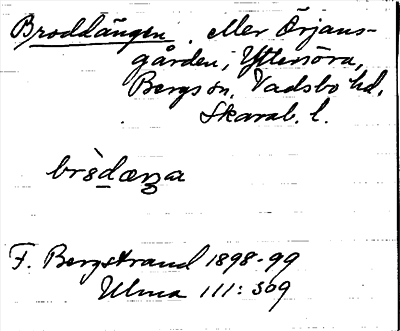 Broddängen, eller Örjans-
gården, Yttersöra,
Bergs sn, Vadsbo hd,
Skarab. l.
brὸdæŋa
F. Bergstrand 1898-99
Ulma 111: 309